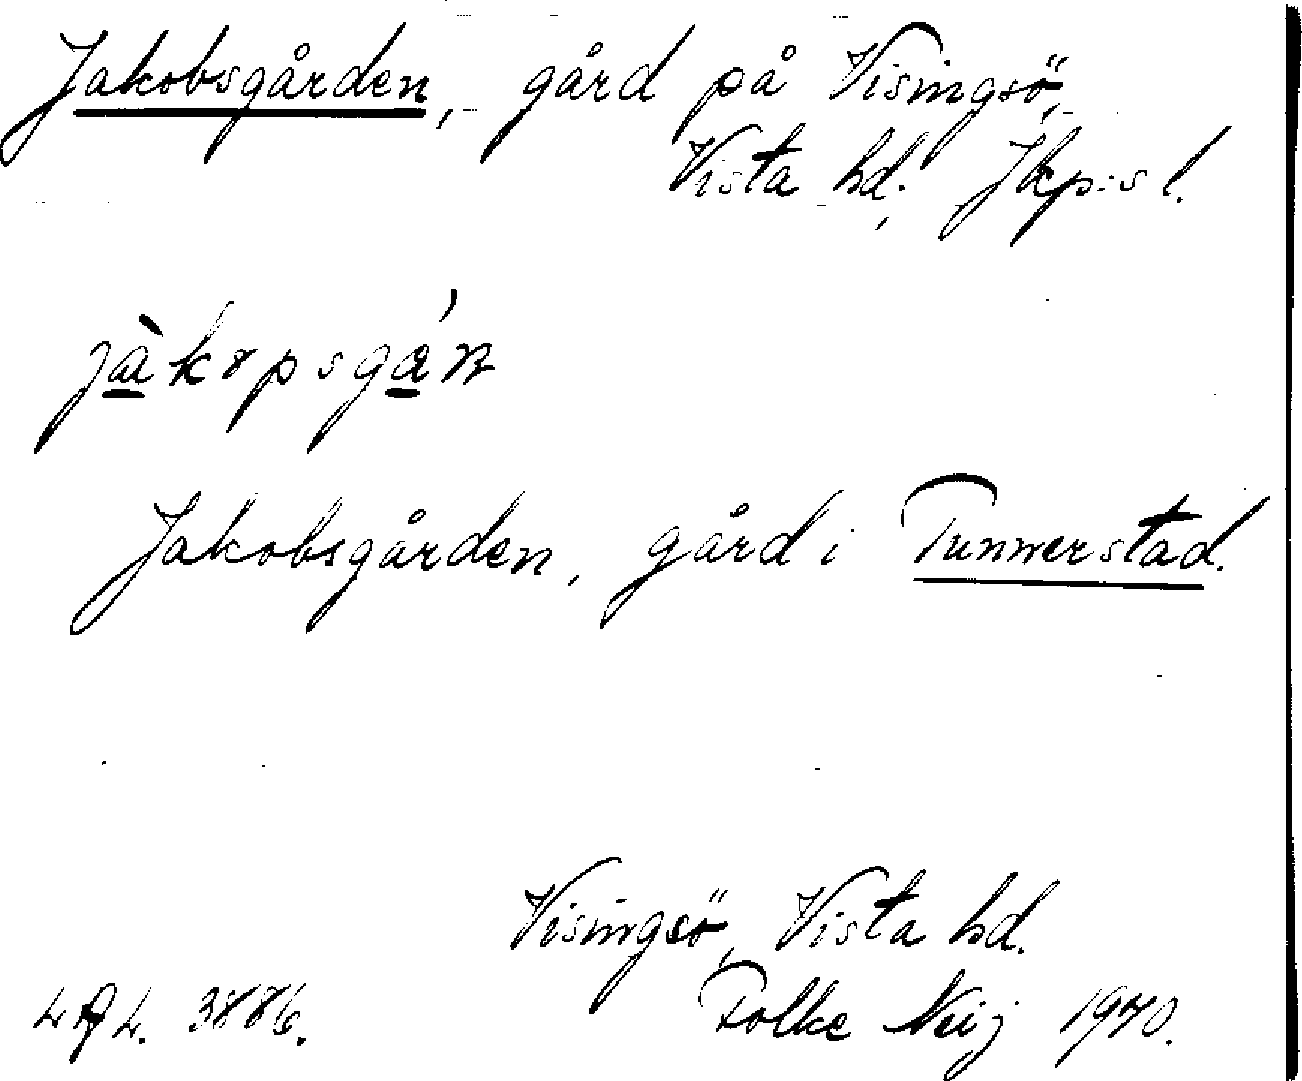 Jakobsgården, gård på Visingsö,
Vista hd, Jkp:s l.
Jakobsgården, gård i Tunnerstad.
Visingsö, Vista hd.
3886. Folke Neij 1940.